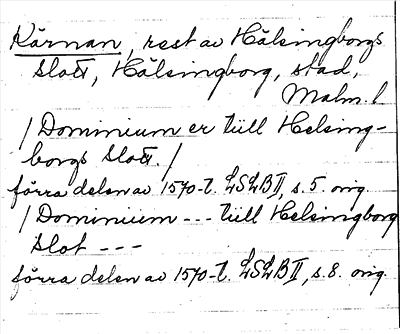 Kärnan, rest av Hälsingborgs
slott, Hälsingborg, stad,
Malm. l
/ Dominium er tiill Helsing-
borgs slott. /
förra delen av 1570-t. LSLB II, s. 5. orig.
/ Dominium --- tiill Helsingborg
slot ---
förra delen av 1570-t. LSLB II, s. 8. orig.